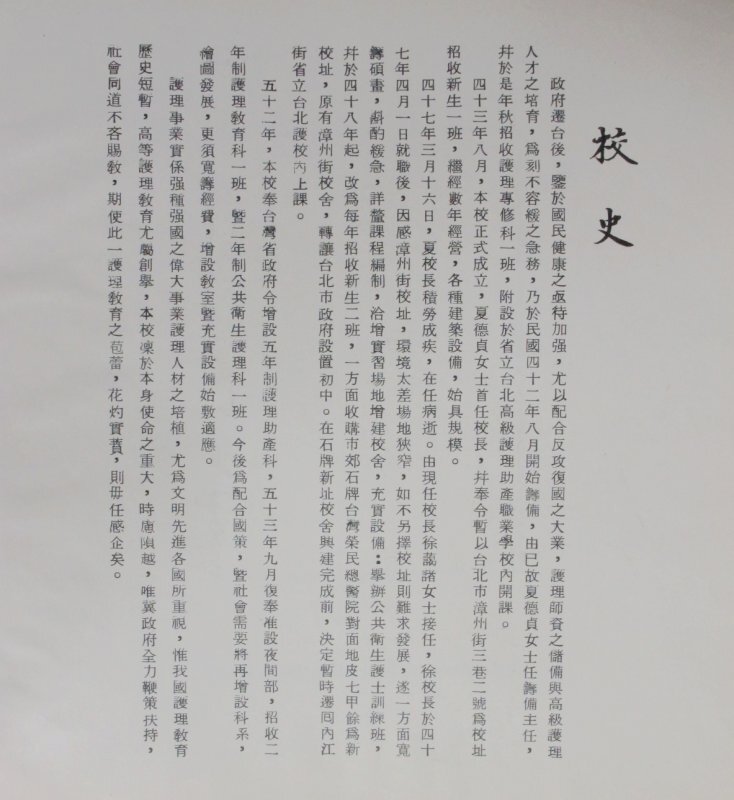 校史
政府遷台後，鑒於國民健康之亟待加强，尤以配合反攻復國之大業，護理師資之儲備與高級護理
人才之培育，爲刻不容緩之急務，乃於民國四十二年八月開始籌備，由已故夏德貞女士任籌備主任，
幷於是年秋招收護理專修科一班，附設於省立台北高級護理助產職業學校內開課。
四十三年八月，本校正式成立，夏德貞女士首任校長，幷奉令暫以台北市漳州街三巷二號爲校址
招收新生一班，繼經數年經營，各種建築設備，始具規模。
四十七年三月十六日，夏校長積勞成疾，在任病逝。由現任校長徐藹諸女士接任，徐校長於四十
七年四月一日就職後，因感漳州街校址，環境太差場地狹窄，如不另擇校址則難求發展，遂一方面寬
籌碩畫，斟酌緩急，詳釐課程編制，洽增實習場地增建校舍，充實設備：舉辦公共衛生護士訓練班，
幷於四十八年起，改爲每年招收新生二班，一方面收購市郊石牌台灣榮民總醫院對面地皮七甲餘爲新
校址，原有漳州街校舍，轉讓台北市政府設置初中。在石牌新址校舍興建完成前，決定暫時遷囘內江
街省立台北護校內上課。
五十二年，本校奉台灣省政府令增設五年制護理助產科，五十三年九月復奉准設夜間部，招收二
年制護理教育科一班，暨二年制公共衛生護理科一班。今後爲配合國策，暨社會需要將再增設科系，
繪圖發展，更須寬籌經費，增設教室暨充實設備始敷適應。
護理事業實係强種强國之偉大事業護理人材之培植，尤爲文明先進各國所重視，惟我國護理教育
歷史短暫，高等護理教育尤屬創舉，本校凜於本身使命之重大，時慮隕越，唯冀政府全力鞭策扶持，
社會同道不吝賜教，期使此一護理教育之苞蕾，花灼實蕡，則毋任感企矣。